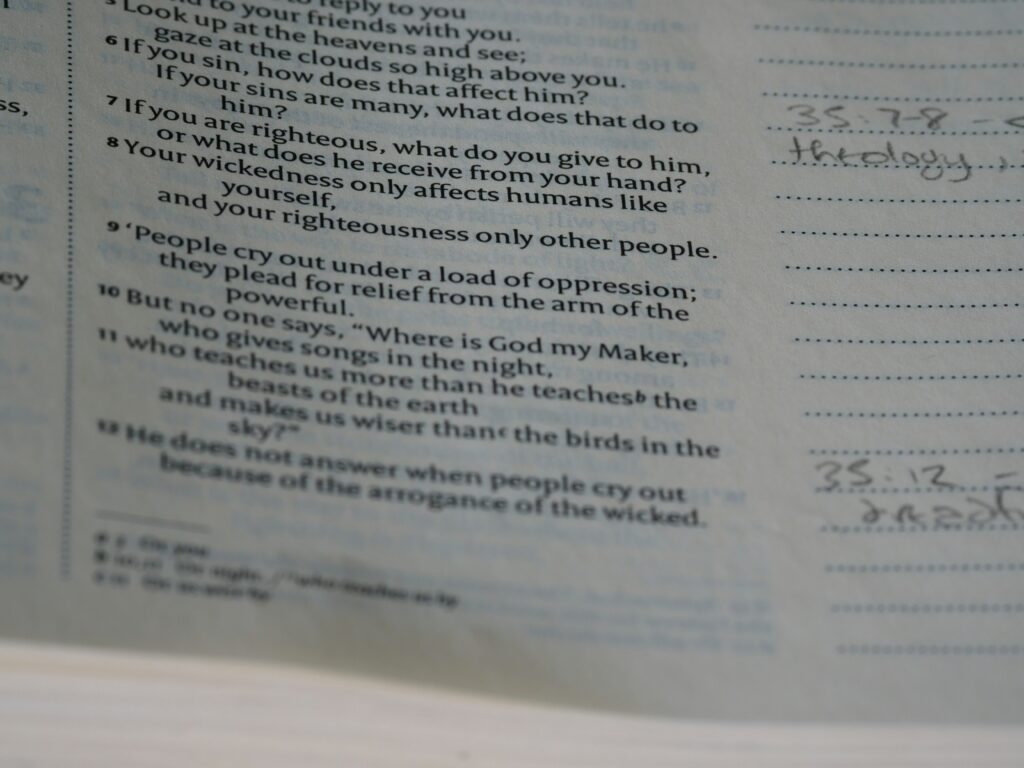 reply to you
to your friends with you.
5 Look up at the heavens and see;
gaze at the clouds so high above you.
6 If you sin, how does that affect him?
If your sins are many, what does that do to
him?
7 If you are righteous, what do you give to him,
or what does he receive from your hand?
8 Your wickedness only affects humans like
yourself,
and your righteousness only other people.
9 ‘People cry out under a load of oppression;
they plead for relief from the arm of the
powerful.
10 But no one says, “Where is God my Maker,
who gives songs in the night,
11 who teaches us more than he teaches b the
beasts of the earth
and makes us wiser than c the birds in the
sky?”
12 He does not answer when people cry out
because of the arrogance of the wicked.
ss,
ey
35:7-8 -
theology,
35:12 -